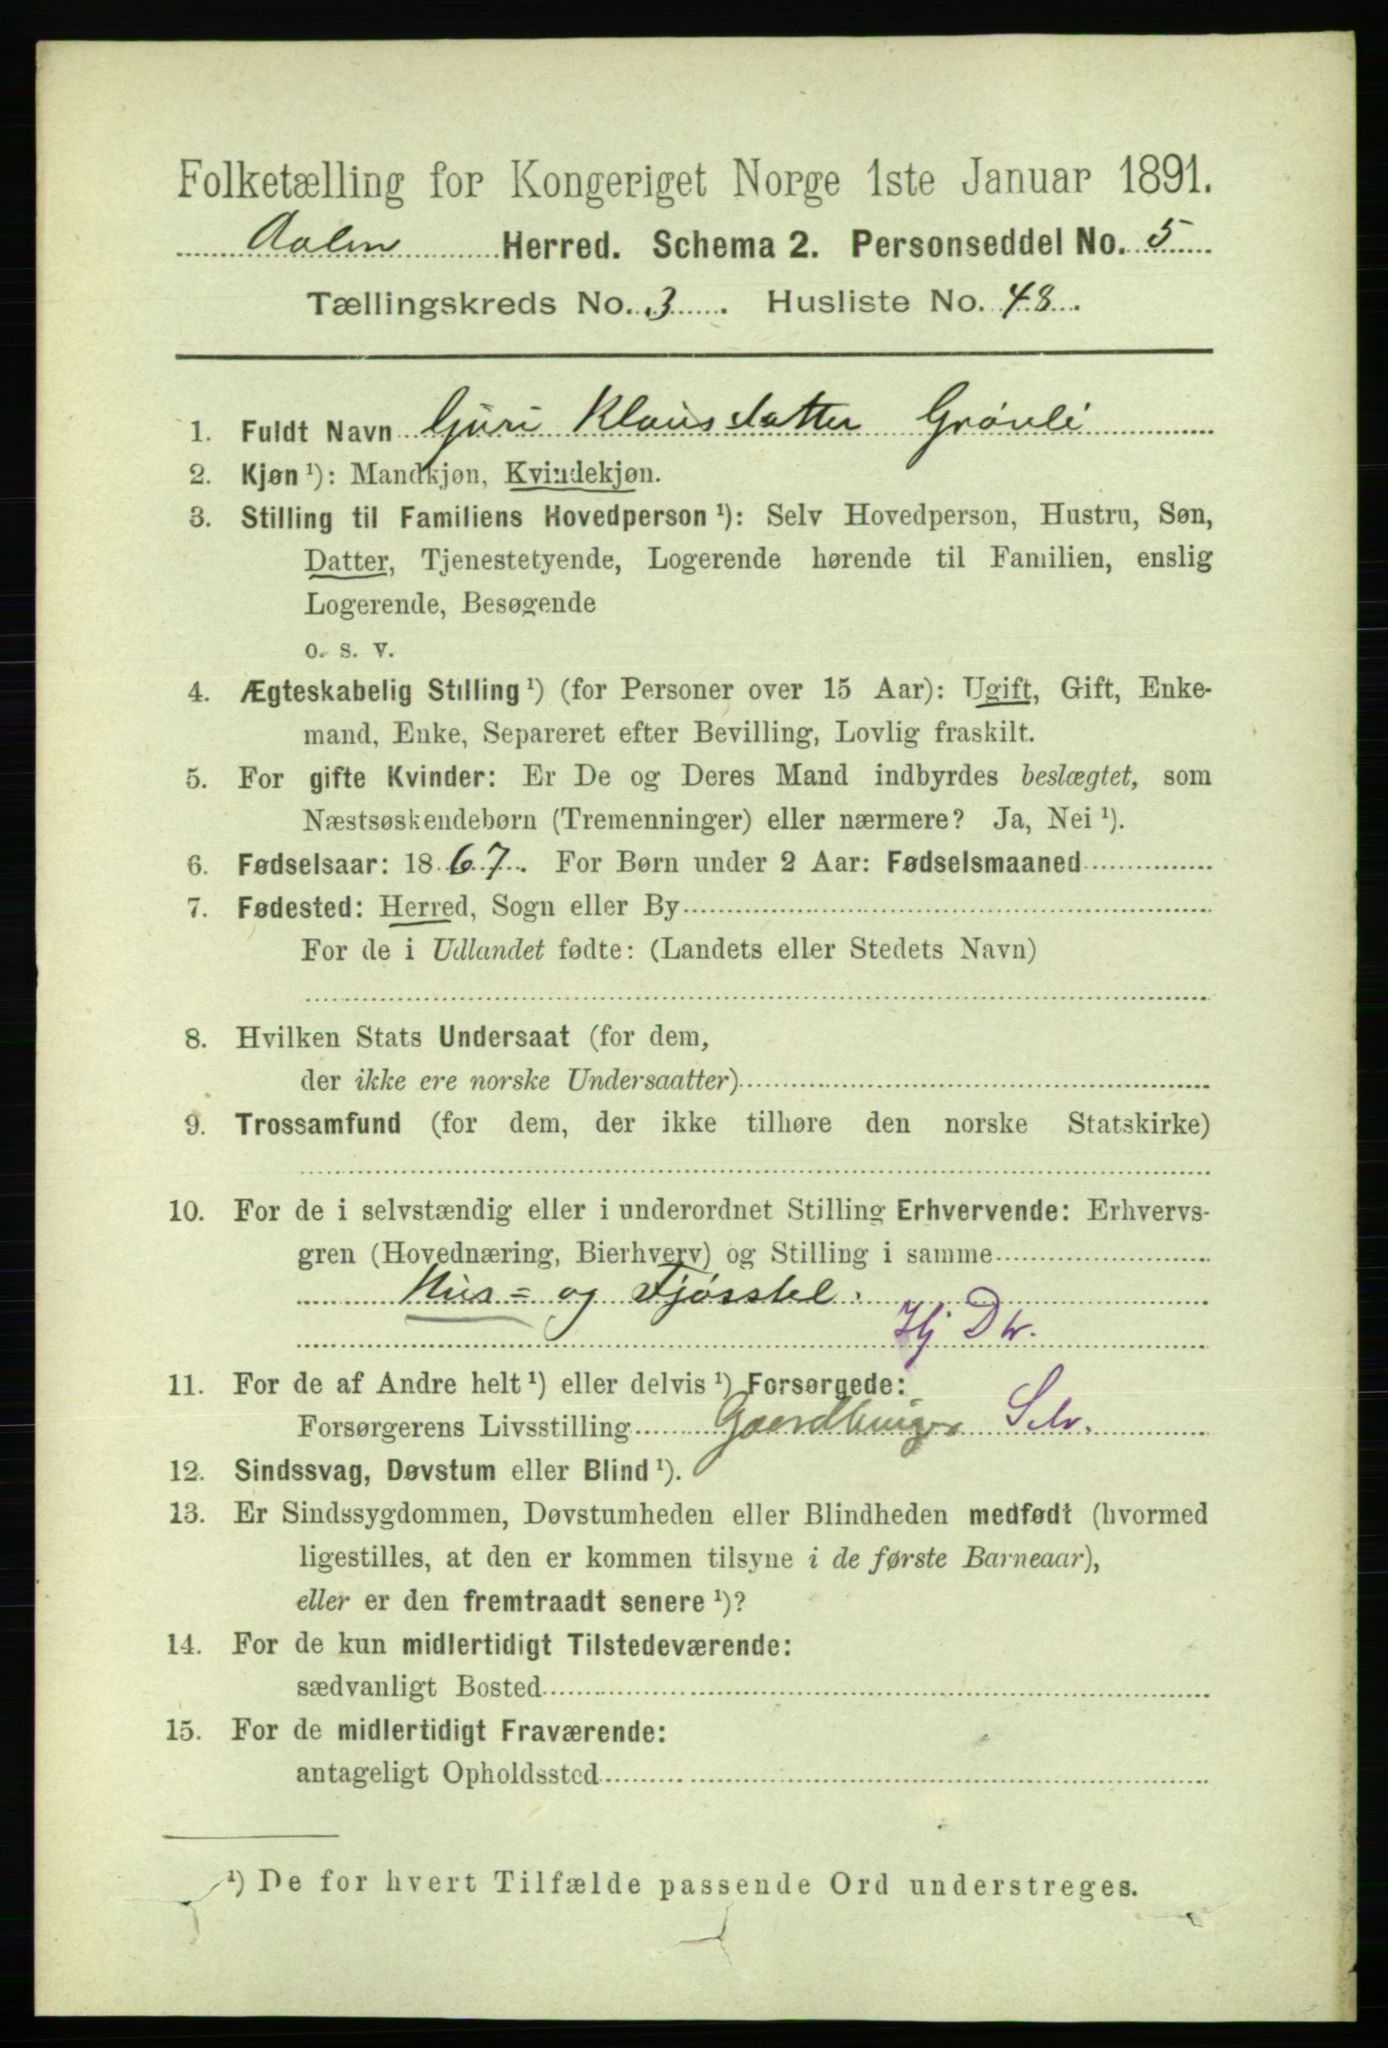 Folketælling for Kongeriget Norge 1ste Januar 1891.
Aalen Herred. Schema 2. Personseddel No. 5
Tællingskreds No. 3. Husliste No. 48.
1. Fuldt Navn Guri Klausdatter Grønli
2. Kjøn¹): Mandkjøn, Kvindekjøn.
3. Stilling til Familiens Hovedperson¹): Selv Hovedperson, Hustru, Søn,
Datter, Tjenestetyende, Logerende hørende til Familien, enslig
Logerende, Besøgende
o. s. v.
4. Ægteskabelig Stilling¹) (for Personer over 15 Aar): Ugift, Gift, Enke-
mand, Enke, Separeret efter Bevilling, Lovlig fraskilt.
5. For gifte Kvinder: Er De og Deres Mand indbyrdes beslægtet, som
Næstsøskendebørn (Tremenninger) eller nærmere? Ja, Nei¹).
6. Fødselsaar: 1867. For Børn under 2 Aar: Fødselsmaaned
7. Fødested: Herred, Sogn eller By
For de i Udlandet fødte: (Landets eller Stedets Navn)
8. Hvilken Stats Undersaat (for dem,
der ikke ere norske Undersaatter)
9. Trossamfund (for dem, der ikke tilhøre den norske Statskirke)
10. For de i selvstændig eller i underordnet Stilling Erhvervende: Erhvervs-
gren (Hovednæring, Bierhverv) og Stilling i samme
Hus- og Fjøsstel.
Hj Dtr.
11. For de af Andre helt¹) eller delvis¹) Forsørgede:
Forsørgerens Livsstilling Gaardbruger Selv.
12. Sindssvag, Døvstum eller Blind¹).
13. Er Sindssygdommen, Døvstumheden eller Blindheden medfødt (hvormed
ligestilles, at den er kommen tilsyne i de første Barneaar),
eller er den fremtraadt senere¹)?
14. For de kun midlertidigt Tilstedeværende:
sædvanligt Bosted
15. For de midlertidigt Fraværende:
antageligt Opholdssted
¹) De for hvert Tilfælde passende Ord understreges.